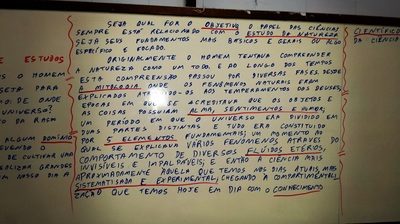 SEJA QUAL FOR O OBJETIVO O PAPEL DAS CIÊNCIAS
SEMPRE ESTÁ RELACIONADO COM O ESTUDO DA NATUREZA
SEJA SEUS FUNDAMENTOS MAIS BÁSICOS E GERAIS OU ALGO
ESPECÍFICO E FOCADO.
ORIGINALMENTE O HOMEM TENTAVA COMPREENDER
A NATUREZA COMO UM TODO E AO LONGO DOS TEMPOS
ESTA COMPREENSÃO PASSOU POR DIVERSAS FASES DESDE
A MITOLOGIA ONDE OS FENÔMENO NATURAIS ERAM
EXPLICADOS ATRIBUIDO-OS AOS TEMPERAMENTOS DOS DEUSES,
ÉPOCAS EM QUE SE ACREDITAVA QUE OS OBJETOS E
AS COISAS POSSUIAM ALMA, SENTIMENTOS E HUMOR,
UM PERÍODO EM QUE O UNIVERSO ERA DIVIDIDO EM
DUAS PARTES DISTINTAS E TUDO ERA CONSTITUIDO
POR 5 ELEMENTOS FUNDAMENTAIS, UM MOMENTO AO
QUAL SE EXPLICAVA VÁRIOS FENÔMENOS ATRAVÉS DO
COMPORTAMENTO DE DIVERSOS FLUIDOS ETÉREOS,
INVISÍVEIS E IMPALPÁVEIS, E ENTÃO A CIÊNCIA MAIS
APROXIMADAMENTE AQUELA QUE TEMOS NOS DIAS ATUAIS, MAIS
SISTEMATISADA E EXPERIMENTAL, CHEGANDO A COMPARTIMENTALI
ZAÇÃO QUE TEMOS HOJE EM DIA COM O CONHECIMENTO
CIENTÍFICO
DA CIÊNCIA
ESTUDOS
O HOMEM
PARA
DE ONDE
UNIVERSO?
ERAM
ALGUM DOMÍNIO
DE CULTIVAR
GRANDES
NOSSO DIA A